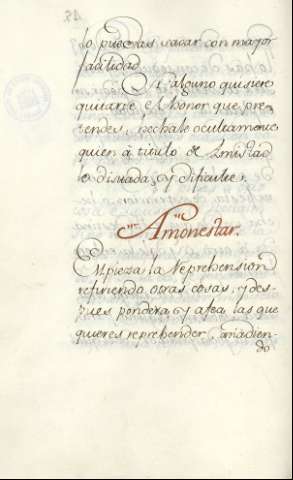 lo puedas sacar con mayor
facilidad.
Si alguno quisiere
quitarte el honor que pre-
tendes, hechale ocultamente
quien à titulo de Amistad
le disuada, y dificulte.
Amonestar.
Empieza la Reprehension
refiriendo otras cosas, y des-
pues pondera, y afea las que
quieres reprehender, añadien-
do